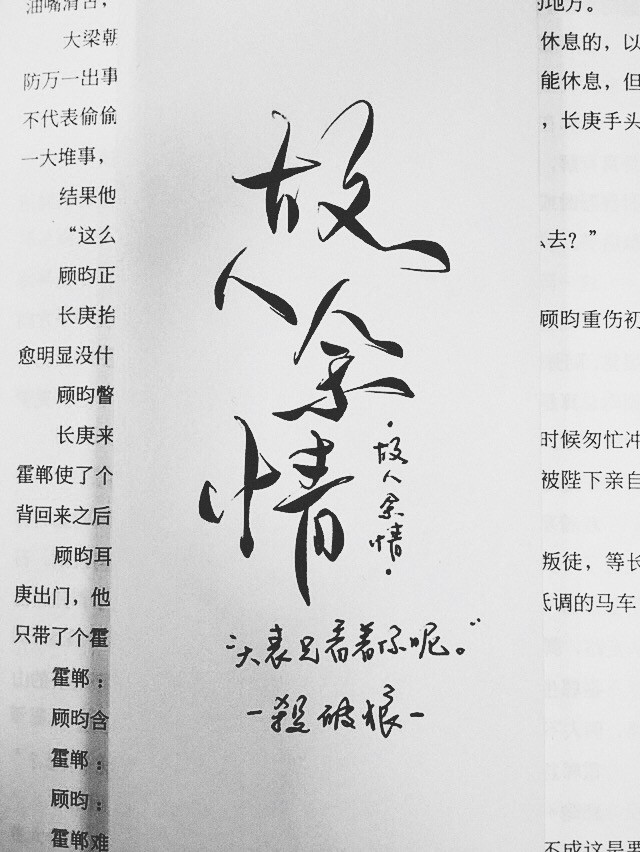 油嘴滑舌，
大梁朝
防万一出事
不代表偷偷
一大堆事，
结果他
“这么
顾昀正
长庚抬
愈明显没什
顾昀瞥
长庚来
霍郸使了个
背回来之后
顾昀耳
庚出门，他
只带了个霍
霍郸：
顾昀含
霍郸：
顾昀：
霍郸难
故
人余
情
·故人余情·
“大表兄看着你呢。”
-殺破狼-
的地方。
休息的，以
能休息，但
，长庚手头
么去？”
顾昀重伤初
时候匆忙冲
被陛下亲自
叛徒，等长
低调的马车
不成这是要